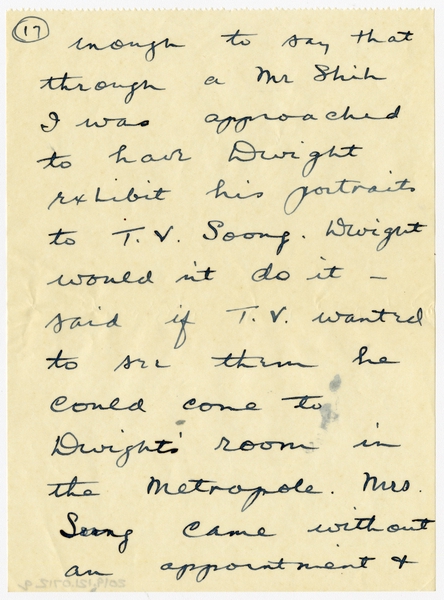 17
inough to say that
through a Mr Shih
I was approached
to have Dwight
exhibit his portraits
to T.V. Soong. Dwight
would n't do it –
said if T.V. wanted
to see them he
could come to
Dwight's room in
the Metropole. Mrs.
Sung came without
an appointment +